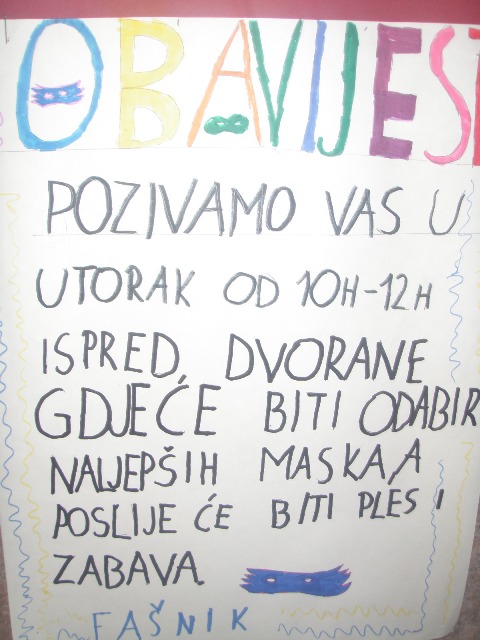 OBAVIJEST
POZIVAMO VAS U
UTORAK OD 10H-12H
ISPRED, DVORANE
GDJEĆE BITI ODABIR
NALJEPŠIH MASKA,A
POSLIJE ĆE BITI PLES I
ZABAVA
FAŠNIK